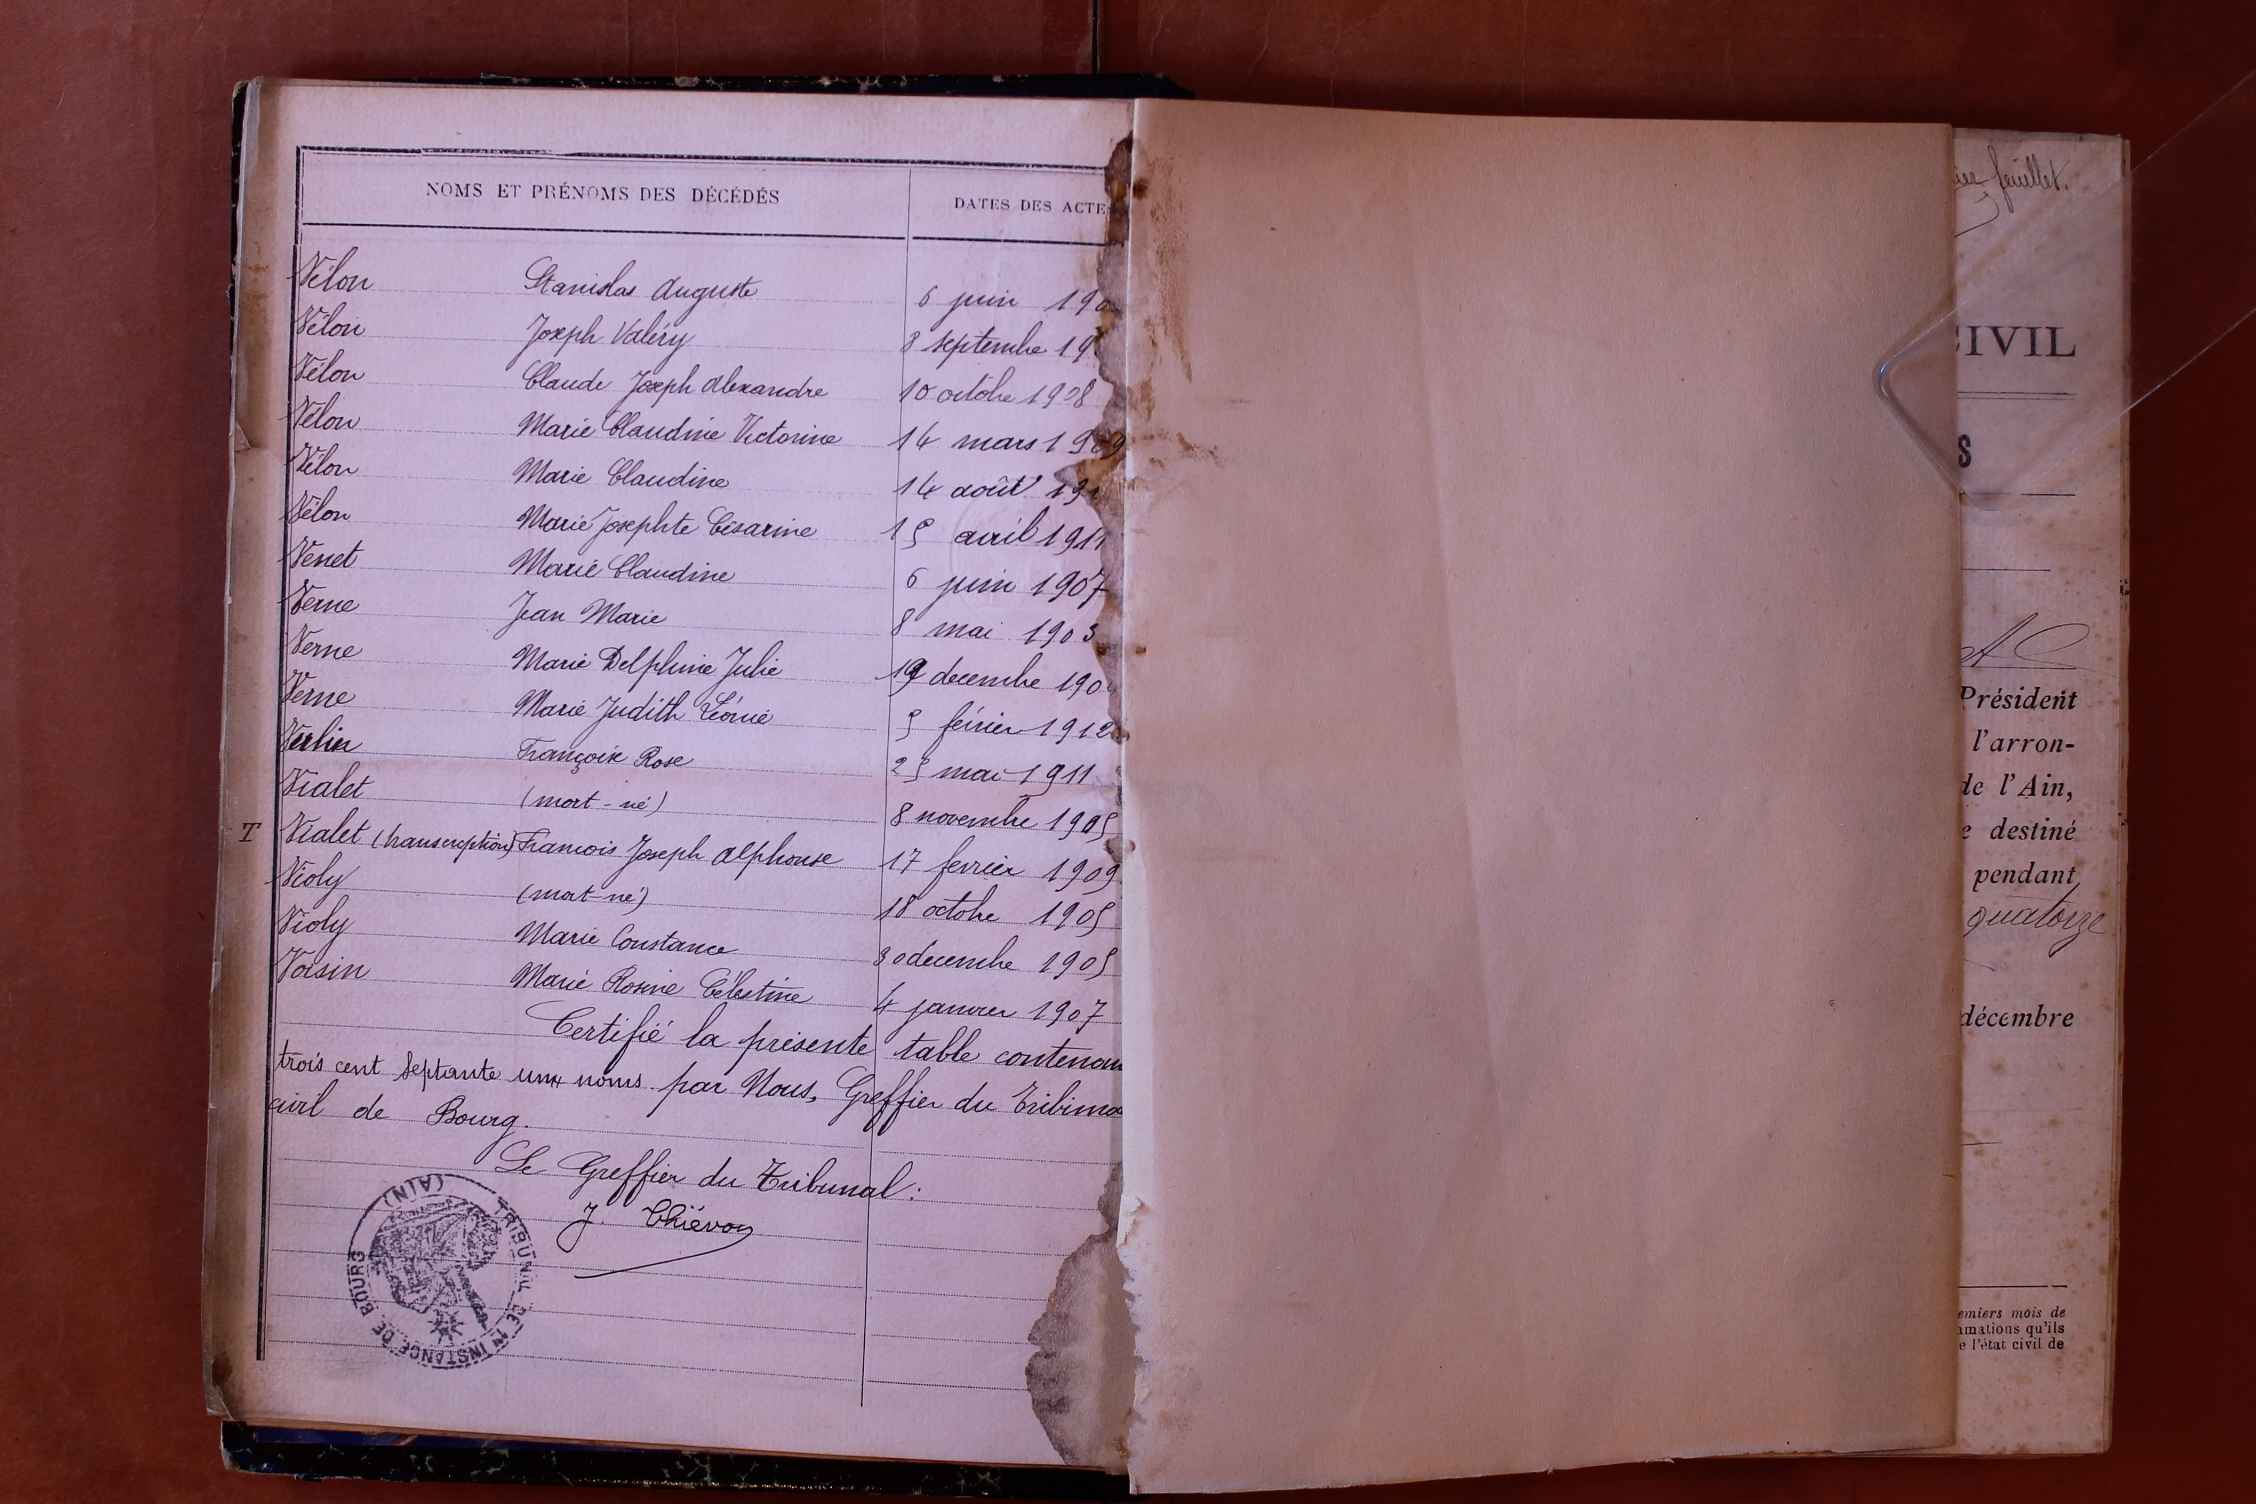 NOMS ET PRÉNOMS DES DÉCÉDÉS DATES DES ACTE
Vélon Stanislas Auguste 6 juin 190
Vélon Joseph Valéry 3 septembre 19
Vélon Claude Joseph Alexandre 10 octobre 1908
Vélon Marie Claudine Victorine 14 mars 1909
Vélon Marie Claudine 14 août 191
Vélon Marie Josephte Césarine 15 avril 1911
Venet Marie Claudine 6 juin 1907
Verne Jean Marie 8 mai 1903
Verne Marie Delphine Julie 19 decembre 190
Verne Marie Judith Léonie 5 février 1912
Verlin Françoise Rose 25 mai 1911
Vialet (mort-né) 8 novembre 1905
T Vialet (transcription) Francois Joseph Alphonse 17 fevrier 1909
Violy (mort-né) 18 octobre 1905
Violy Marie Constance 30 decembre 1905
Voisin Marie Rosine Célestine 4 janvier 1907
Certifié la présente table contenan
trois cent septante un noms par Nous, Greffier du Tribuna
civil de Bourg.
Le Greffier du Tribunal:
J. Chiévon
TRIBUNAL DE 1re INSTANCE DE BOURG (AIN)
feuillet.
CIVIL
S
Président
l'arron-
de l'Ain,
e destiné
pendant
quatorze
décembre
emiers mois de
amations qu'ils
e l'état civil de